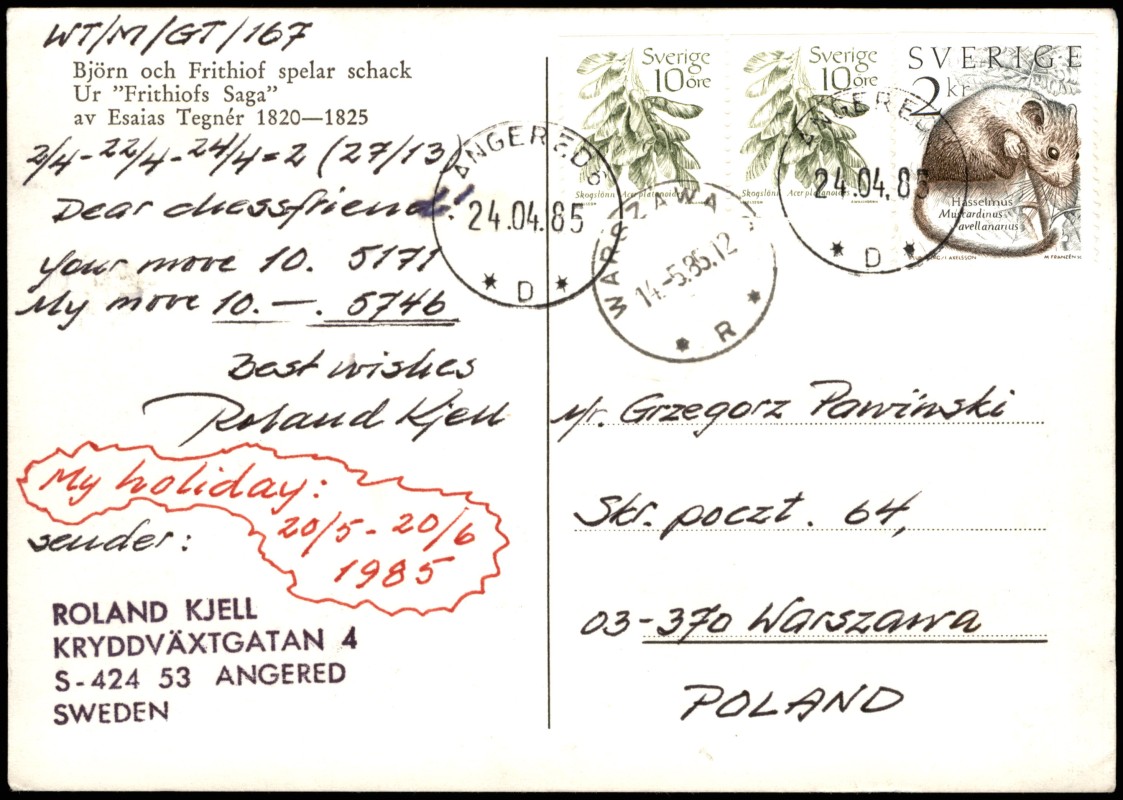 WT/M/GT/167
Björn och Frithiof spelar schack
Ur "Frithiofs Saga"
av Esaias Tegnér 1820—1825
2/4-22/4-24/4=2 (27/13)
Dear chessfriend!
Your move 10. 5171
My move 10.—. 5746
Best wishes
Roland Kjell
My holiday:
20/5 - 20/6
1985
sender:
ROLAND KJELL
KRYDDVÄXTGATAN 4
S-424 53 ANGERED
SWEDEN
Sverige
10 öre
Skogslönn Acer platanoides
Sverige
10 öre
Skogslönn Acer platanoides
SVERIGE
2 kr
Hasselmus
Muscardinus
avellanarius
M FRANZÉN SC
ANGERED
24.04.85
D
WARSZAWA
14.-5.85.12
R
ANGERED
24.04.85
D
Mr. Grzegorz Pawinski
Skr. poczt. 64,
03-370 Warszawa
POLAND